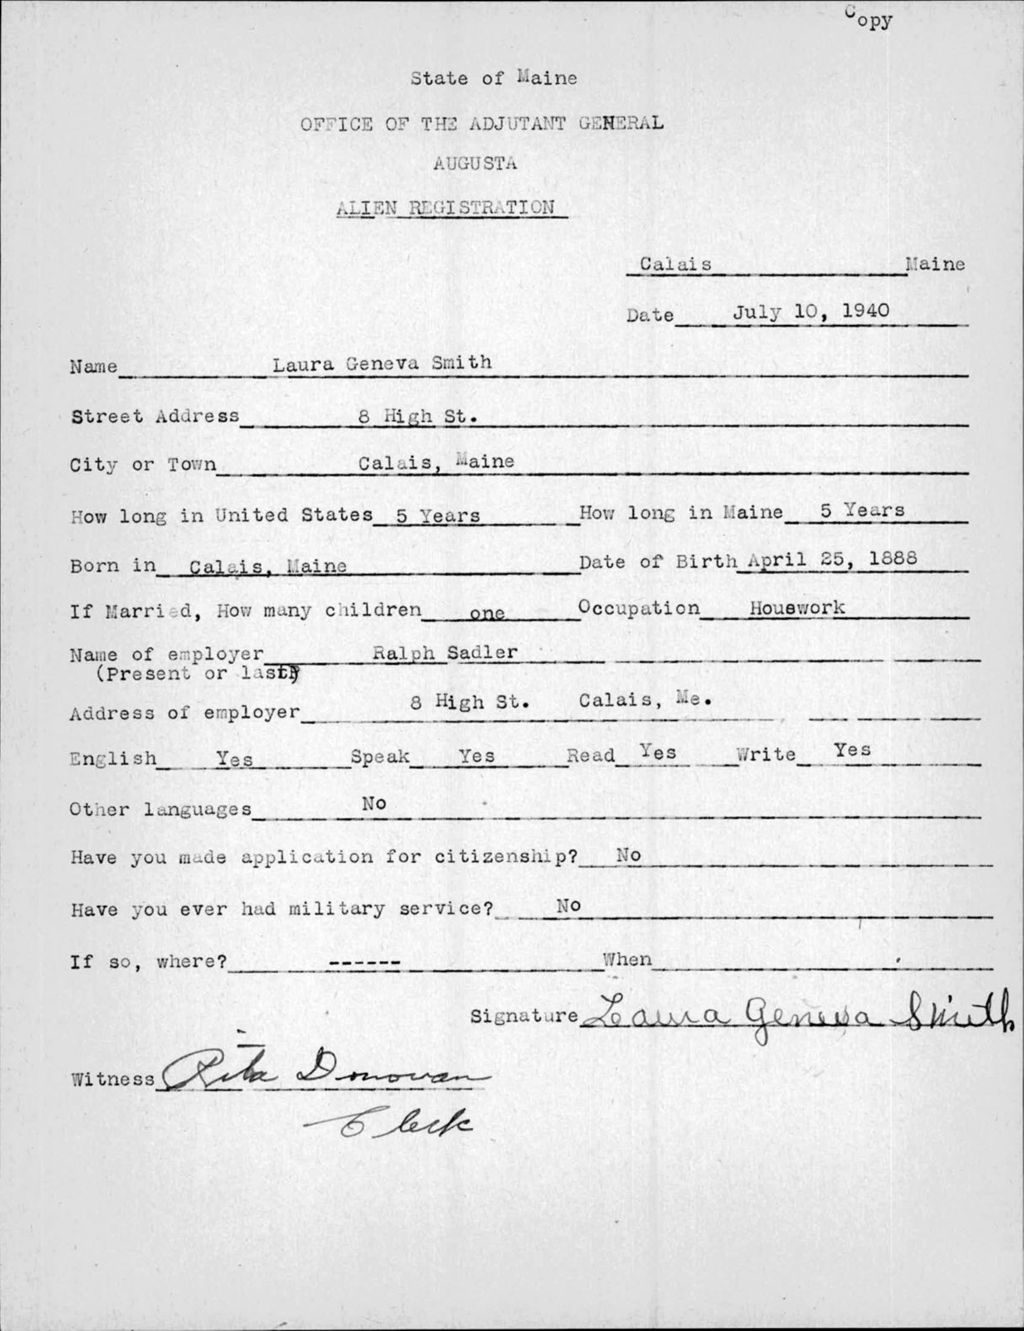 Copy
State of Maine
OFFICE OF THE ADJUTANT GENERAL
AUGUSTA
ALIEN REGISTRATION
Calais Maine
Date July 10, 1940
Name Laura Geneva Smith
Street Address 8 High St.
City or Town Calais, Maine
How long in United States 5 Years How long in Maine 5 Years
Born in Calais, Maine Date of Birth April 25, 1888
If Married, How many children one Occupation Housework
Name of employer Ralph Sadler
(Present or last)
Address of employer 8 High St. Calais, Me.
English Yes Speak Yes Read Yes Write Yes
Other languages No
Have you made application for citizenship? No
Have you ever had military service? No
If so, where? ------ When
Signature Laura Geneva Smith
Witness Rita Donovan
Clerk